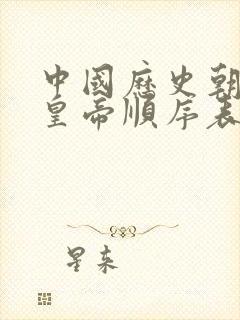 中國歷史朝
皇帝順序表
星来